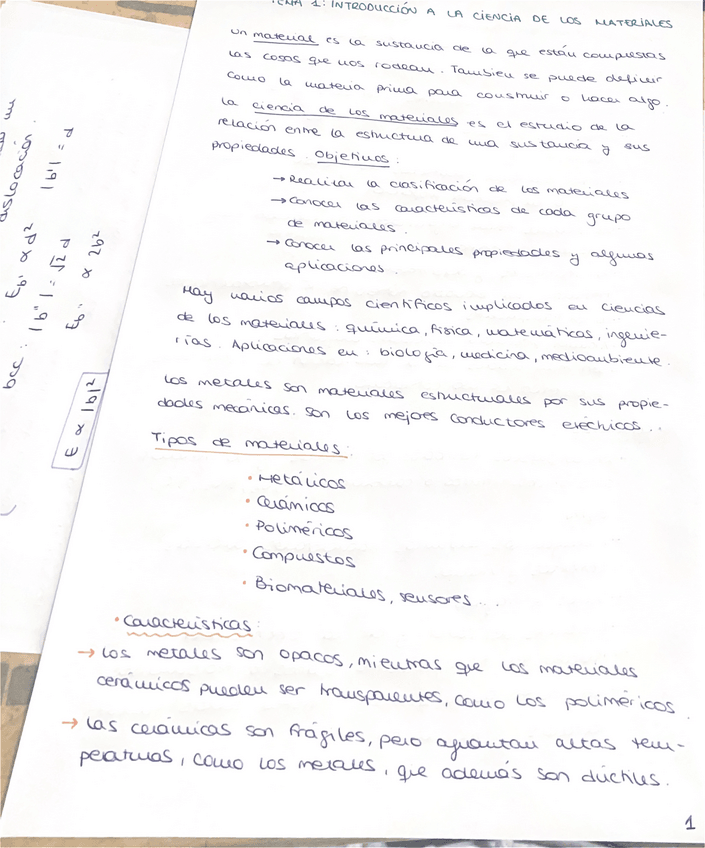 TEMA 1: INTRODUCCIÓN A LA CIENCIA DE LOS MATERIALES
Un material es la sustancia de la que están compuestas
las cosas que nos rodean. También se puede definir
como la materia prima para construir o hacer algo.
La ciencia de los materiales es el estudio de la
relación entre la estructura de una sustancia y sus
propiedades. Objetivos:
→ Realizar la clasificación de los materiales
→ Conocer las características de cada grupo
de materiales.
→ Conocer las principales propiedades y algunas
aplicaciones.
Hay varios campos científicos implicados en ciencias
de los materiales: química, física, matemáticas, ingenie-
rías. Aplicaciones en: biología, medicina, medioambiente.
Los metales son materiales estructurales por sus propie-
dades mecánicas. Son los mejores conductores eléctricos...
Tipos de materiales:
• Metálicos
• Cerámicos
• Poliméricos
• Compuestos
• Biomateriales, sensores...
• Características:
→ Los metales son opacos, mientras que los materiales
cerámicos pueden ser transparentes, como los poliméricos.
→ Las cerámicas son frágiles, pero aguantan altas tem-
peraturas, como los metales, que además son dúctiles.
1
dislocación.
|b'| = d
Eb' ∝ d²
bcc:
|b''| = √2 d
Eb'' ∝ 2b²
E ∝ |b|²